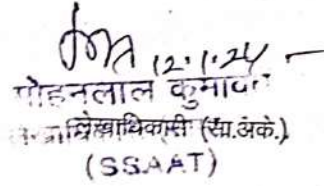 12.1.24
मोहनलाल कुमावत
लेखाधिकारी (सा.अंके.)
(SSAAT)